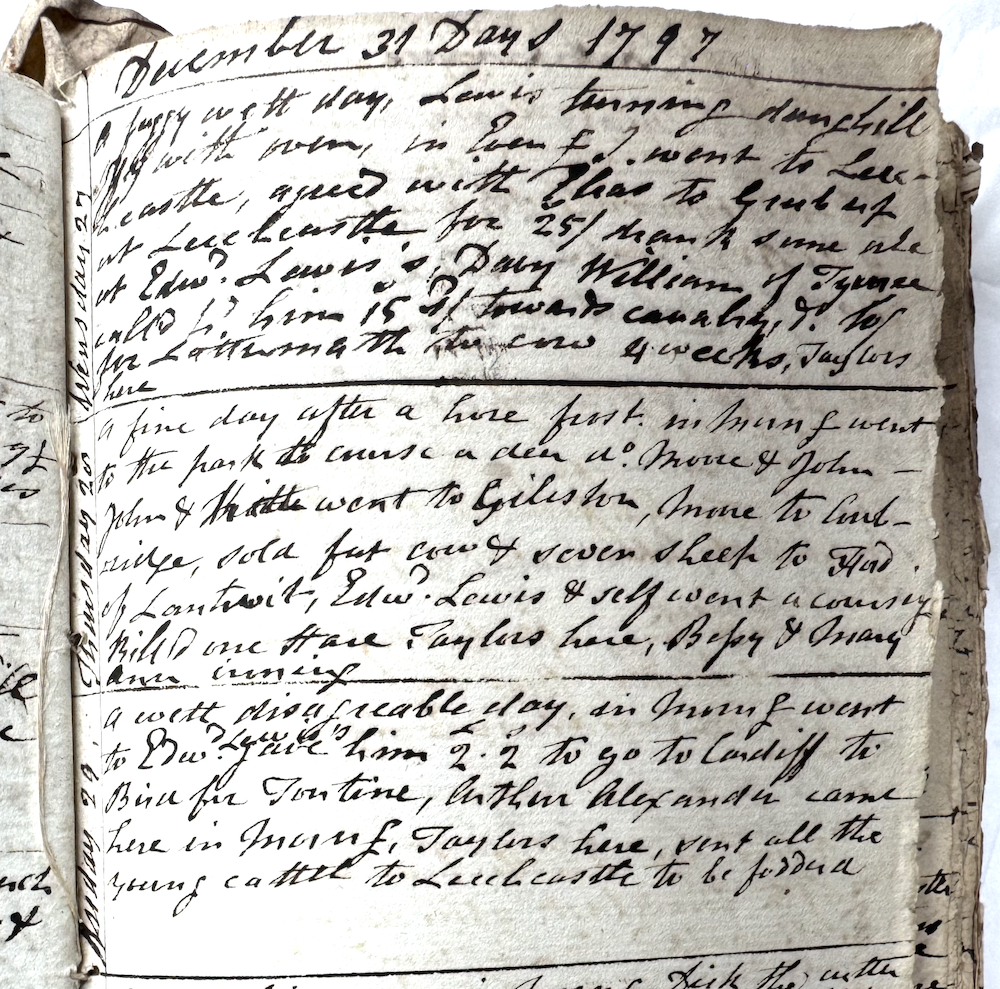 December 31 Days 1797
Wensday 27
A foggy wett day, Lewis turning dunghill
with oxen, in Eveng J. went to Leech-
castle, agreed with Elias to Grub up
at Leechcastle for 25/ drank some ale
at Edwd. Lewis's, Davy William of
call'd pd. him 15 towards cavalry, Do. 10/
for Lattermath for cow 4 weeks, Taylors
here
Thursday 28
A fine day after a hore frost. in Morng went
to the park to course a deer do. Moore & John -
John & went to Gileston, Moore to Cowb-
ridge, sold fat cow & seven sheep to
of Lantwit, Edwd. Lewis & self went a coursing
Kill'd one Hare Taylors here, Bessy & Mary
ann ironing
Friday 29
a wett disagreable day, in Morng went
to Edwd. Lewis's gave him £2.2 to go to Cardiff to
Bird for Tontine, Arthur Alexander came
here in Morng, Taylors here, sent all the
young cattel to Leechcastle to be fodderd
Dick the